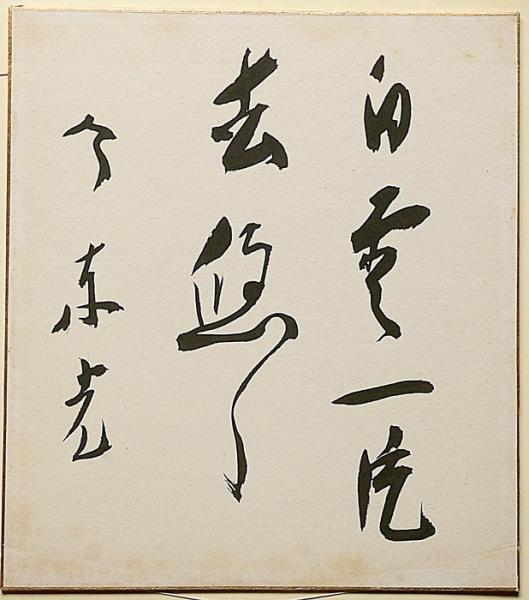 白雲一片
去悠々
今東光